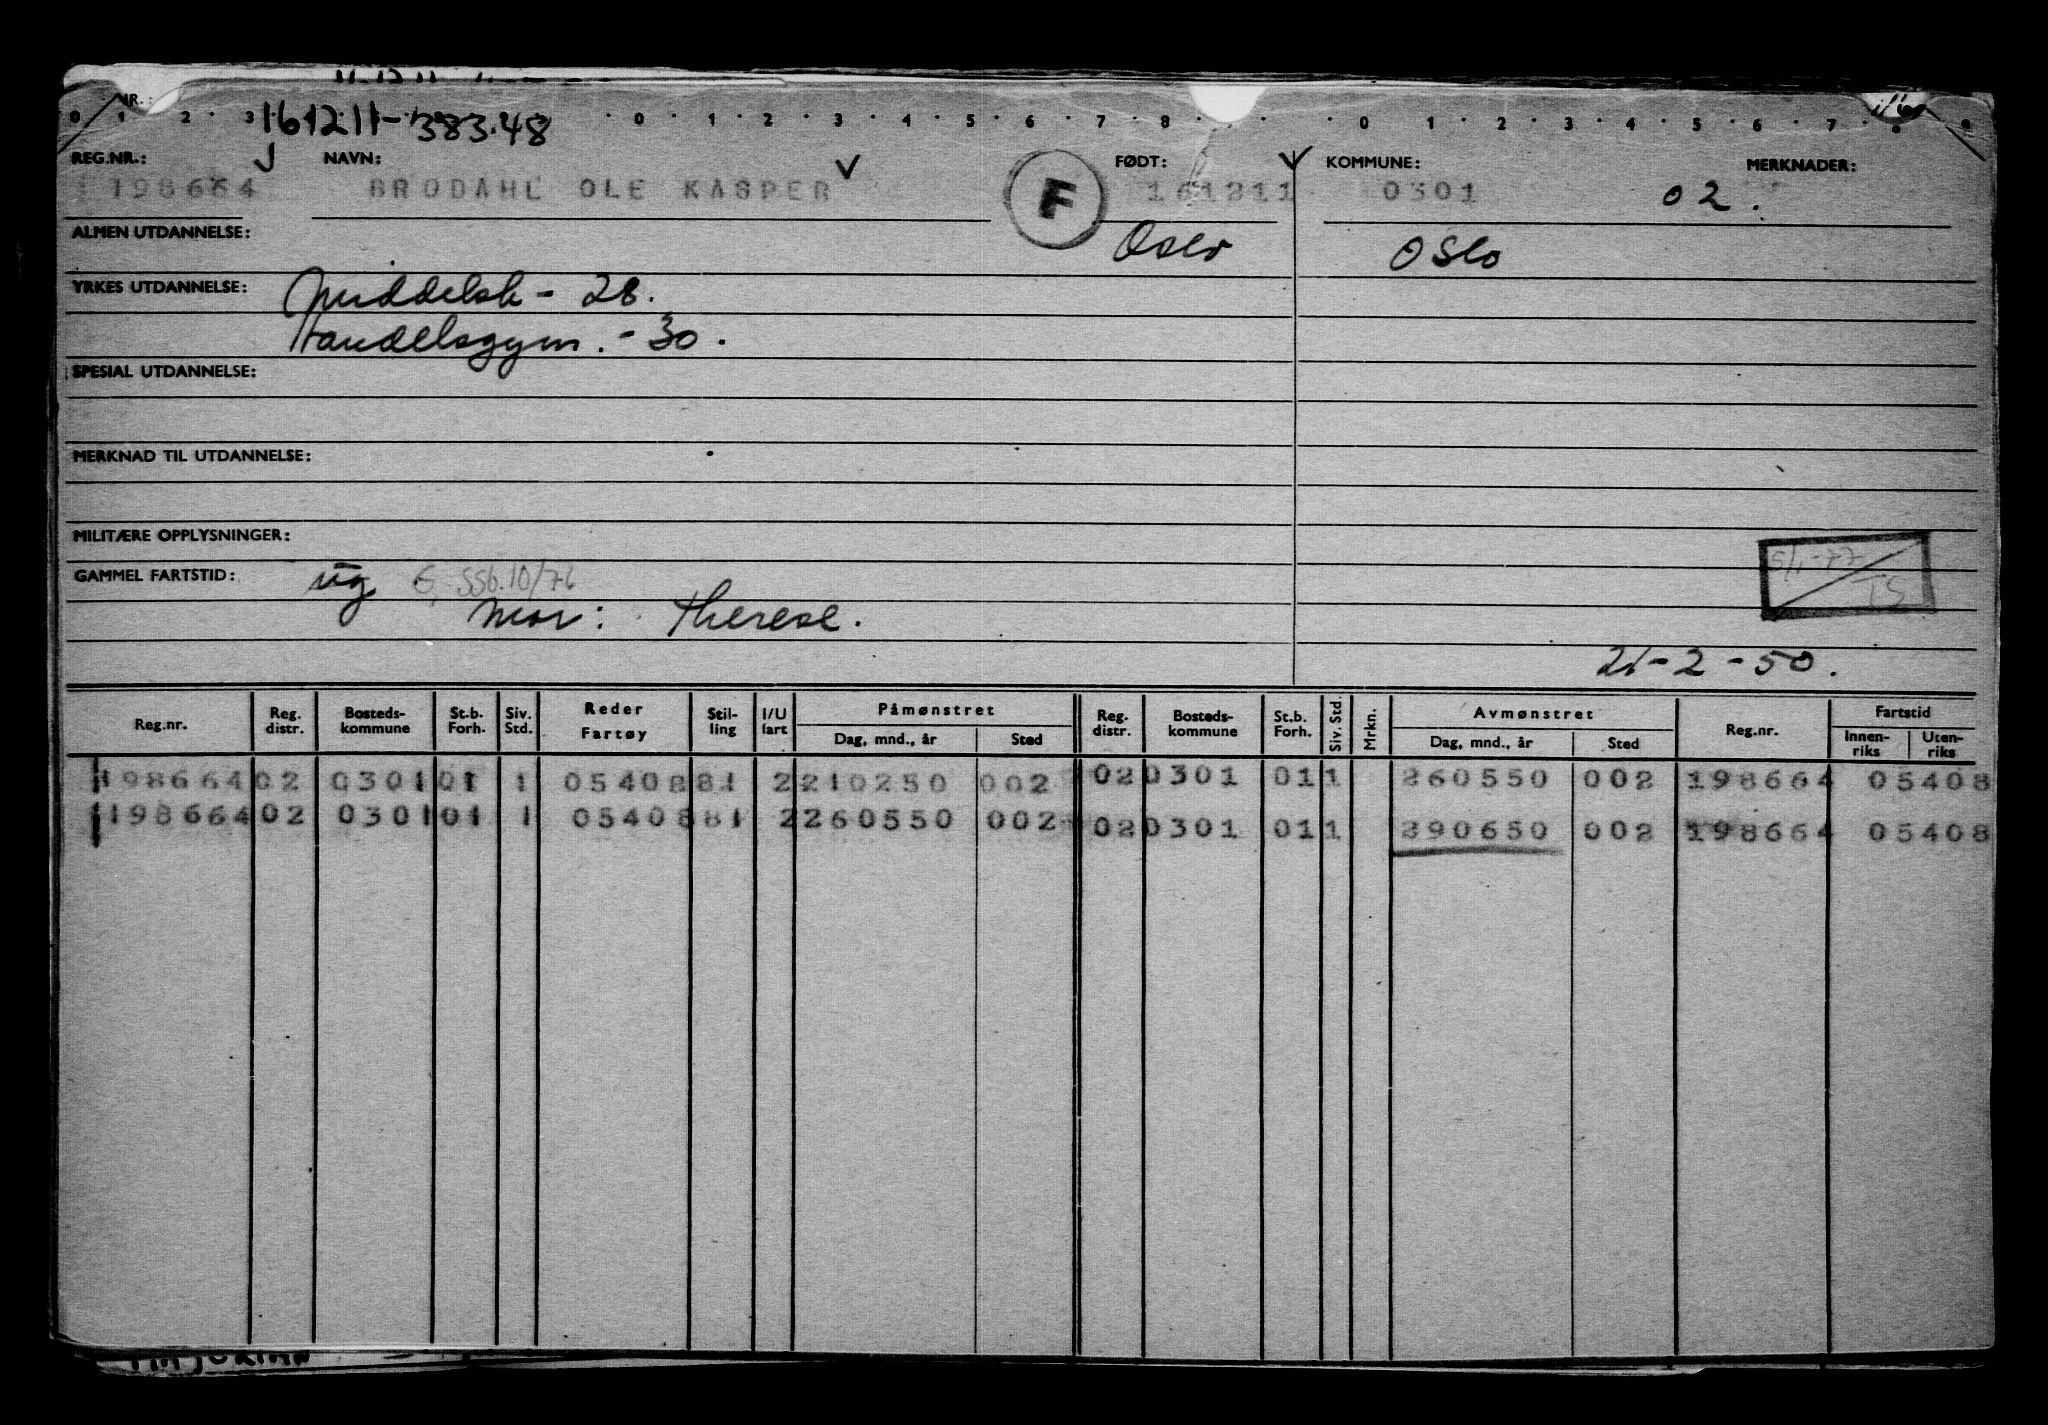 NR.:
161211-38348
0 1 2 3 0 1 2 3 4 5 6 7 8 0 1 2 3 4 5 6 7 8 9
REG.NR.: NAVN: FØDT: KOMMUNE: MERKNADER:
198664 BRODAHL OLE KASPER F 161211 0301 02.
ALMEN UTDANNELSE: Oslo Oslo
YRKES UTDANNELSE: Middelsk - 28.
Handelsgym. - 30.
SPESIAL UTDANNELSE:
MERKNAD TIL UTDANNELSE:
MILITÆRE OPPLYSNINGER:
5/1-77
TS
GAMMEL FARTSTID: ug SSb.10/76
Mor: Therese.
21-2-50.
Reg.nr. Reg. distr. Bosteds-kommune St.b. Forh. Siv. Std. Reder Fartøy Stil-ling I/U fart Påmønstret Dag, mnd., år Sted Reg. distr. Bosteds-kommune St.b. Forh. Siv. Std. Mrkn. Avmønstret Dag, mnd., år Sted Reg.nr. Fartstid Innen-riks Uten-riks
198664 02 0301 01 1 05408 81 2 210250 002 02 0301 01 1 260550 002 198664 05408
198664 02 0301 01 1 05408 81 2 260550 002 02 0301 01 1 290650 002 198664 05408